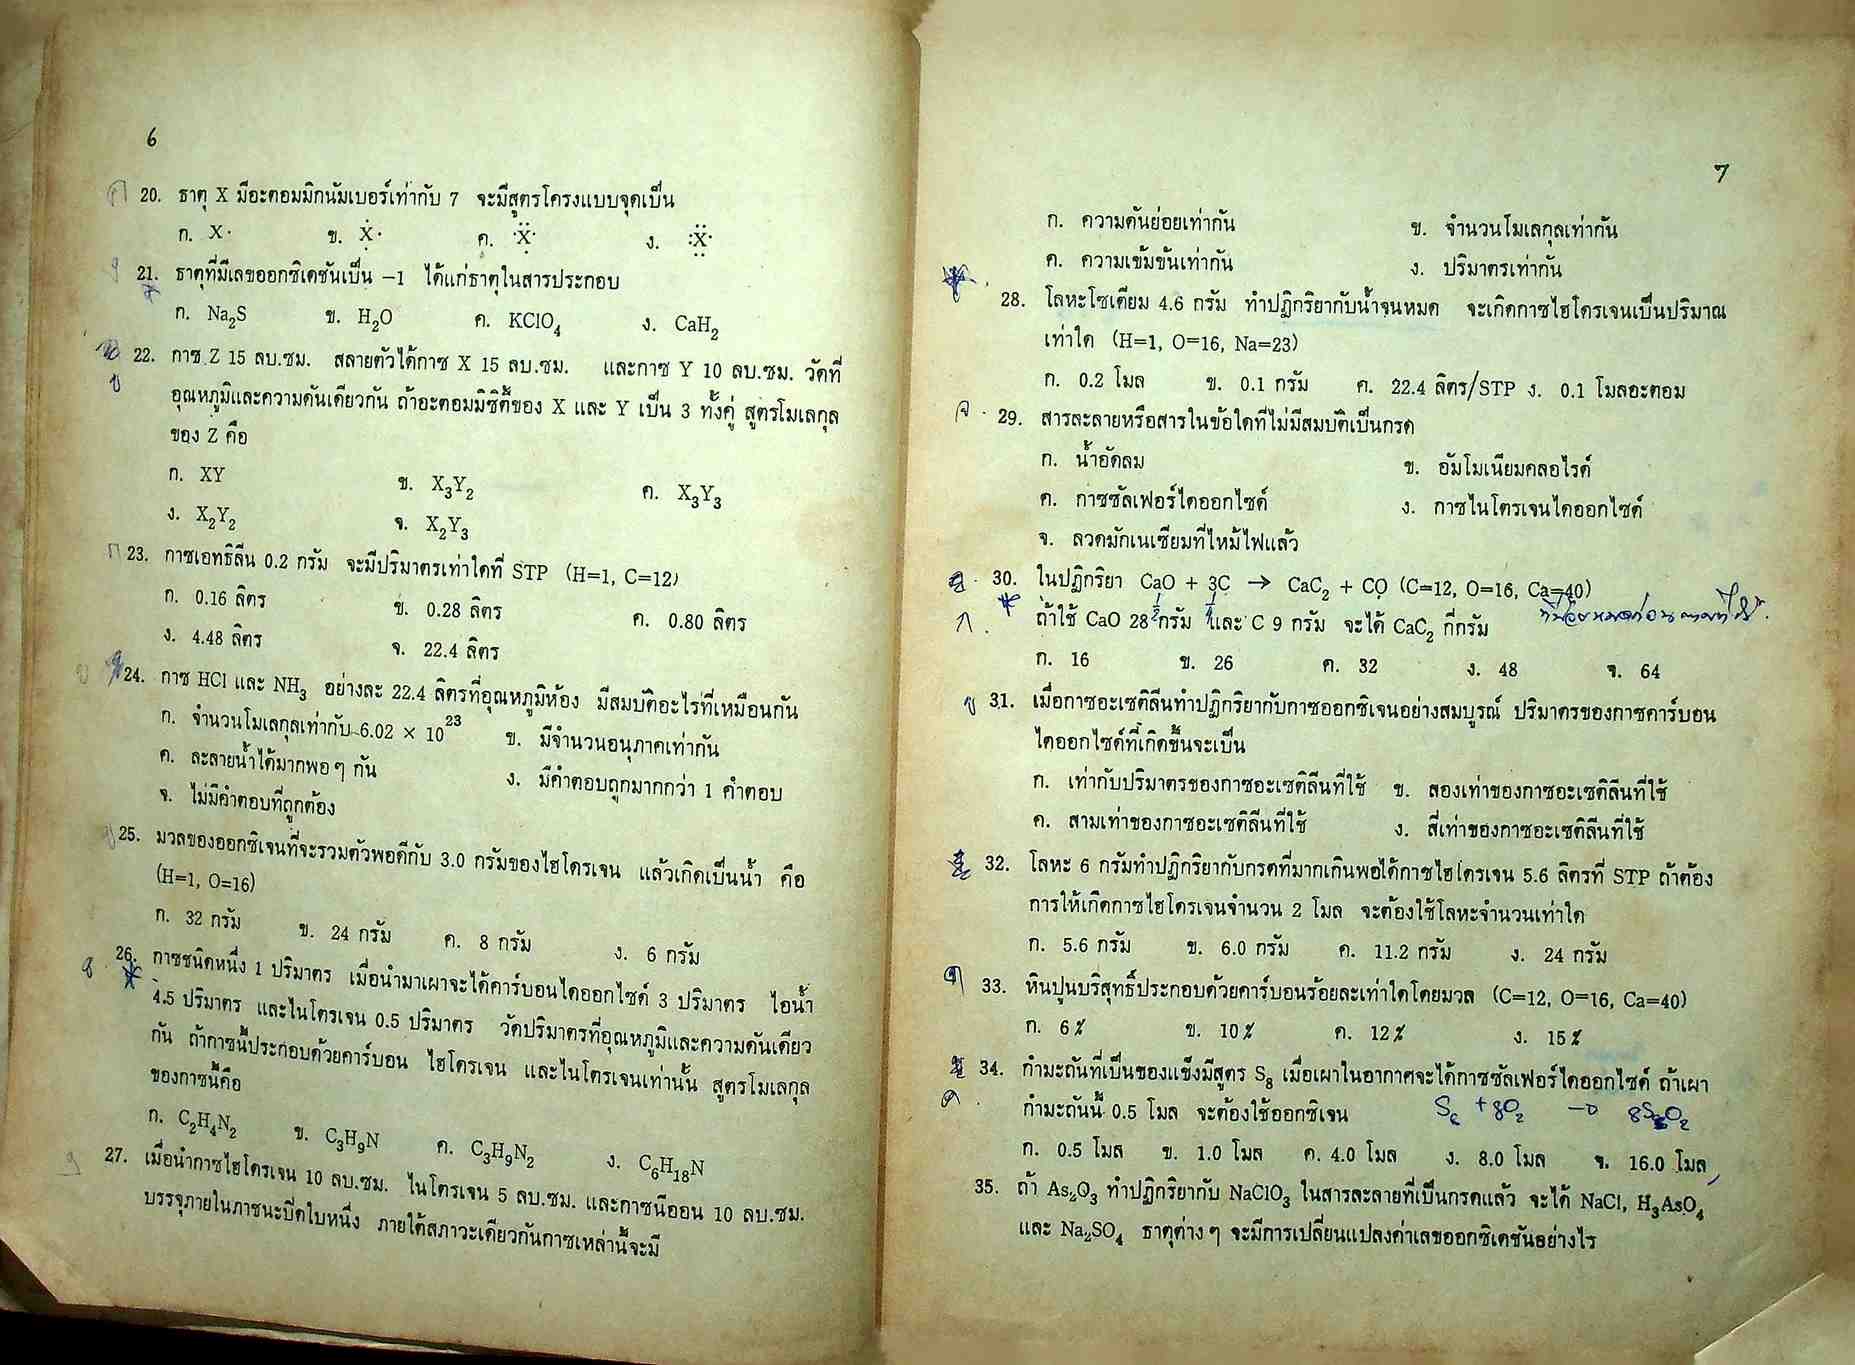 6
20. ธาตุ X มีอะตอมมิกนัมเบอร์เท่ากับ 7 จะมีสูตรโครงแบบจุดเป็น
ก. X· ข. Ẋ· ค. ·Ẍ· ง. :Ẍ·
21. ธาตุที่มีเลขออกซิเดชันเป็น −1 ได้แก่ธาตุในสารประกอบ
ก. Na₂S ข. H₂O ค. KClO₄ ง. CaH₂
22. กาซ Z 15 ลบ.ซม. สลายตัวได้กาซ X 15 ลบ.ซม. และกาซ Y 10 ลบ.ซม. วัดที่
อุณหภูมิและความดันเดียวกัน ถ้าอะตอมมิซิตี้ของ X และ Y เป็น 3 ทั้งคู่ สูตรโมเลกุล
ของ Z คือ
ก. XY ข. X₃Y₂ ค. X₃Y₃
ง. X₂Y₂ จ. X₂Y₃
23. กาซเอทธิลีน 0.2 กรัม จะมีปริมาตรเท่าใดที่ STP (H=1, C=12)
ก. 0.16 ลิตร ข. 0.28 ลิตร ค. 0.80 ลิตร
ง. 4.48 ลิตร จ. 22.4 ลิตร
24. กาซ HCl และ NH₃ อย่างละ 22.4 ลิตรที่อุณหภูมิห้อง มีสมบัติอะไรที่เหมือนกัน
ก. จำนวนโมเลกุลเท่ากับ 6.02 × 10²³ ข. มีจำนวนอนุภาคเท่ากัน
ค. ละลายน้ำได้มากพอๆ กัน ง. มีคำตอบถูกมากกว่า 1 คำตอบ
จ. ไม่มีคำตอบที่ถูกต้อง
25. มวลของออกซิเจนที่จะรวมตัวพอดีกับ 3.0 กรัมของไฮโดรเจน แล้วเกิดเป็นน้ำ คือ
(H=1, O=16)
ก. 32 กรัม ข. 24 กรัม ค. 8 กรัม ง. 6 กรัม
26. กาซชนิดหนึ่ง 1 ปริมาตร เมื่อนำมาเผาจะได้คาร์บอนไดออกไซด์ 3 ปริมาตร ไอน้ำ
4.5 ปริมาตร และไนโตรเจน 0.5 ปริมาตร วัดปริมาตรที่อุณหภูมิและความดันเดียว
กัน ถ้ากาซนี้ประกอบด้วยคาร์บอน ไฮโดรเจน และไนโตรเจนเท่านั้น สูตรโมเลกุล
ของกาซนี้คือ
ก. C₂H₄N₂ ข. C₃H₉N ค. C₃H₉N₂ ง. C₆H₁₈N
27. เมื่อนำกาซไฮโดรเจน 10 ลบ.ซม. ไนโตรเจน 5 ลบ.ซม. และกาซนีออน 10 ลบ.ซม.
บรรจุภายในภาชนะปิดใบหนึ่ง ภายใต้สภาวะเดียวกันกาซเหล่านี้จะมี
7
ก. ความดันย่อยเท่ากัน ข. จำนวนโมเลกุลเท่ากัน
ค. ความเข้มข้นเท่ากัน ง. ปริมาตรเท่ากัน
28. โลหะโซเดียม 4.6 กรัม ทำปฏิกริยากับน้ำจนหมด จะเกิดกาซไฮโดรเจนเป็นปริมาณ
เท่าใด (H=1, O=16, Na=23)
ก. 0.2 โมล ข. 0.1 กรัม ค. 22.4 ลิตร/STP ง. 0.1 โมลอะตอม
29. สารละลายหรือสารในข้อใดที่ไม่มีสมบัติเป็นกรด
ก. น้ำอัดลม ข. อัมโมเนียมคลอไรด์
ค. กาซซัลเฟอร์ไดออกไซด์ ง. กาซไนโตรเจนไดออกไซด์
จ. ลวดมักเนเซียมที่ไหม้ไฟแล้ว
30. ในปฏิกริยา CaO + 3C → CaC₂ + CO (C=12, O=16, Ca=40)
ถ้าใช้ CaO 28 กรัม และ C 9 กรัม จะได้ CaC₂ กี่กรัม
ก. 16 ข. 26 ค. 32 ง. 48 จ. 64
31. เมื่อกาซอะเซติลีนทำปฏิกริยากับกาซออกซิเจนอย่างสมบูรณ์ ปริมาตรของกาซคาร์บอน
ไดออกไซด์ที่เกิดขึ้นจะเป็น
ก. เท่ากับปริมาตรของกาซอะเซติลีนที่ใช้ ข. สองเท่าของกาซอะเซติลีนที่ใช้
ค. สามเท่าของกาซอะเซติลีนที่ใช้ ง. สี่เท่าของกาซอะเซติลีนที่ใช้
32. โลหะ 6 กรัมทำปฏิกริยากับกรดที่มากเกินพอได้กาซไฮโดรเจน 5.6 ลิตรที่ STP ถ้าต้อง
การให้เกิดกาซไฮโดรเจนจำนวน 2 โมล จะต้องใช้โลหะจำนวนเท่าใด
ก. 5.6 กรัม ข. 6.0 กรัม ค. 11.2 กรัม ง. 24 กรัม
33. หินปูนบริสุทธิ์ประกอบด้วยคาร์บอนร้อยละเท่าใดโดยมวล (C=12, O=16, Ca=40)
ก. 6% ข. 10% ค. 12% ง. 15%
34. กำมะถันที่เป็นของแข็งมีสูตร S₈ เมื่อเผาในอากาศจะได้กาซซัลเฟอร์ไดออกไซด์ ถ้าเผา
กำมะถันนี้ 0.5 โมล จะต้องใช้ออกซิเจน
ก. 0.5 โมล ข. 1.0 โมล ค. 4.0 โมล ง. 8.0 โมล จ. 16.0 โมล
35. ถ้า As₂O₃ ทำปฏิกริยากับ NaClO₃ ในสารละลายที่เป็นกรดแล้ว จะได้ NaCl, H₃AsO₄
และ Na₂SO₄ ธาตุต่างๆ จะมีการเปลี่ยนแปลงค่าเลขออกซิเดชันอย่างไร